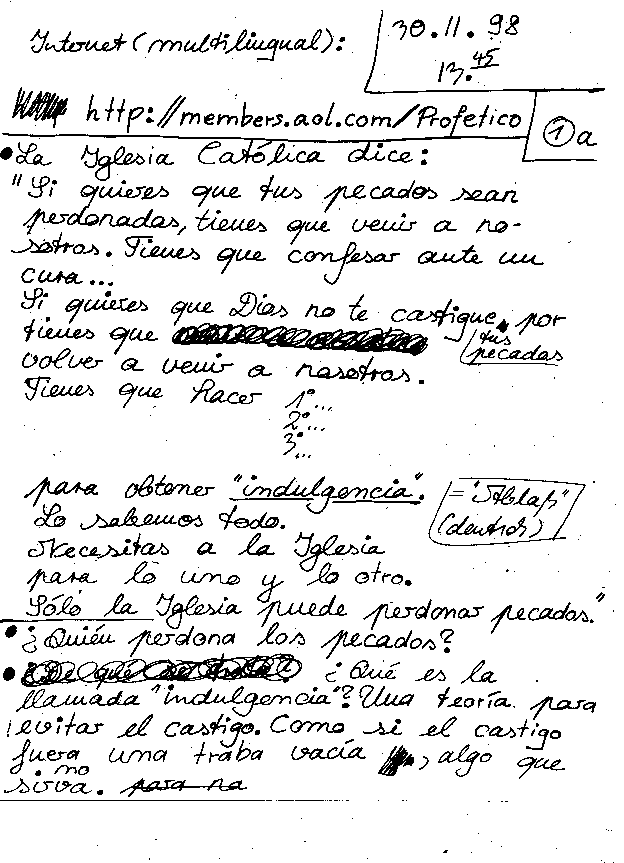 Internet (multilingual):
30.11.98
13.45
http://members.aol.com/Profetico
1a
• La Iglesia Católica dice:
"Si quieres que tus pecados sean
perdonadas, tienes que venir a no-
sotros. Tienes que confesar ante un
cura...
Si quieres que Dios no te castigue por
tus
tienes que
pecadas
volver a venir a nosotros.
Tienes que hacer 1°...
2°...
3°...
para obtener "indulgencia".
= "Ablaß"
(deutsch)
Lo sabemos todo.
Necesitas a la Iglesia
para lo uno y lo otro.
Sólo la Iglesia puede perdonar pecados."
• ¿Quién perdona los pecados?
• ¿De qué se trata? ¿Qué es la
llamada "indulgencia"? Una teoría para
evitar el castigo. Como si el castigo
fuera una traba vacía, algo que
no
sirva. para na